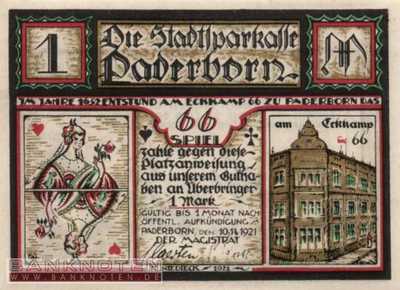 1
Die Stadtsparkasse
Paderborn
IM JAHRE 1652 ENTSTUND AM ECKKAMP 66 ZU PADERBORN DAS
66
SPIEL
zahle gegen diese
Platzanweisung
aus unserem Gutha-
ben an Überbringer
1 Mark
GÜLTIG BIS 1 MONAT NACH
ÖFFENTL. AUFKÜNDIGUNG
PADERBORN, DEN 10.11.1921
DER MAGISTRAT
am Eckkamp
66
1921
BANKNOTEN